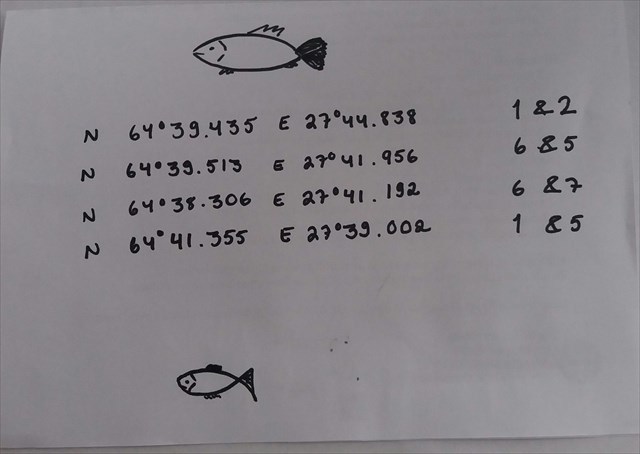 N 64°39.435 E 27°44.838 1 & 2
N 64°39.513 E 27°41.956 6 & 5
N 64°38.306 E 27°41.192 6 & 7
N 64°41.355 E 27°39.002 1 & 5